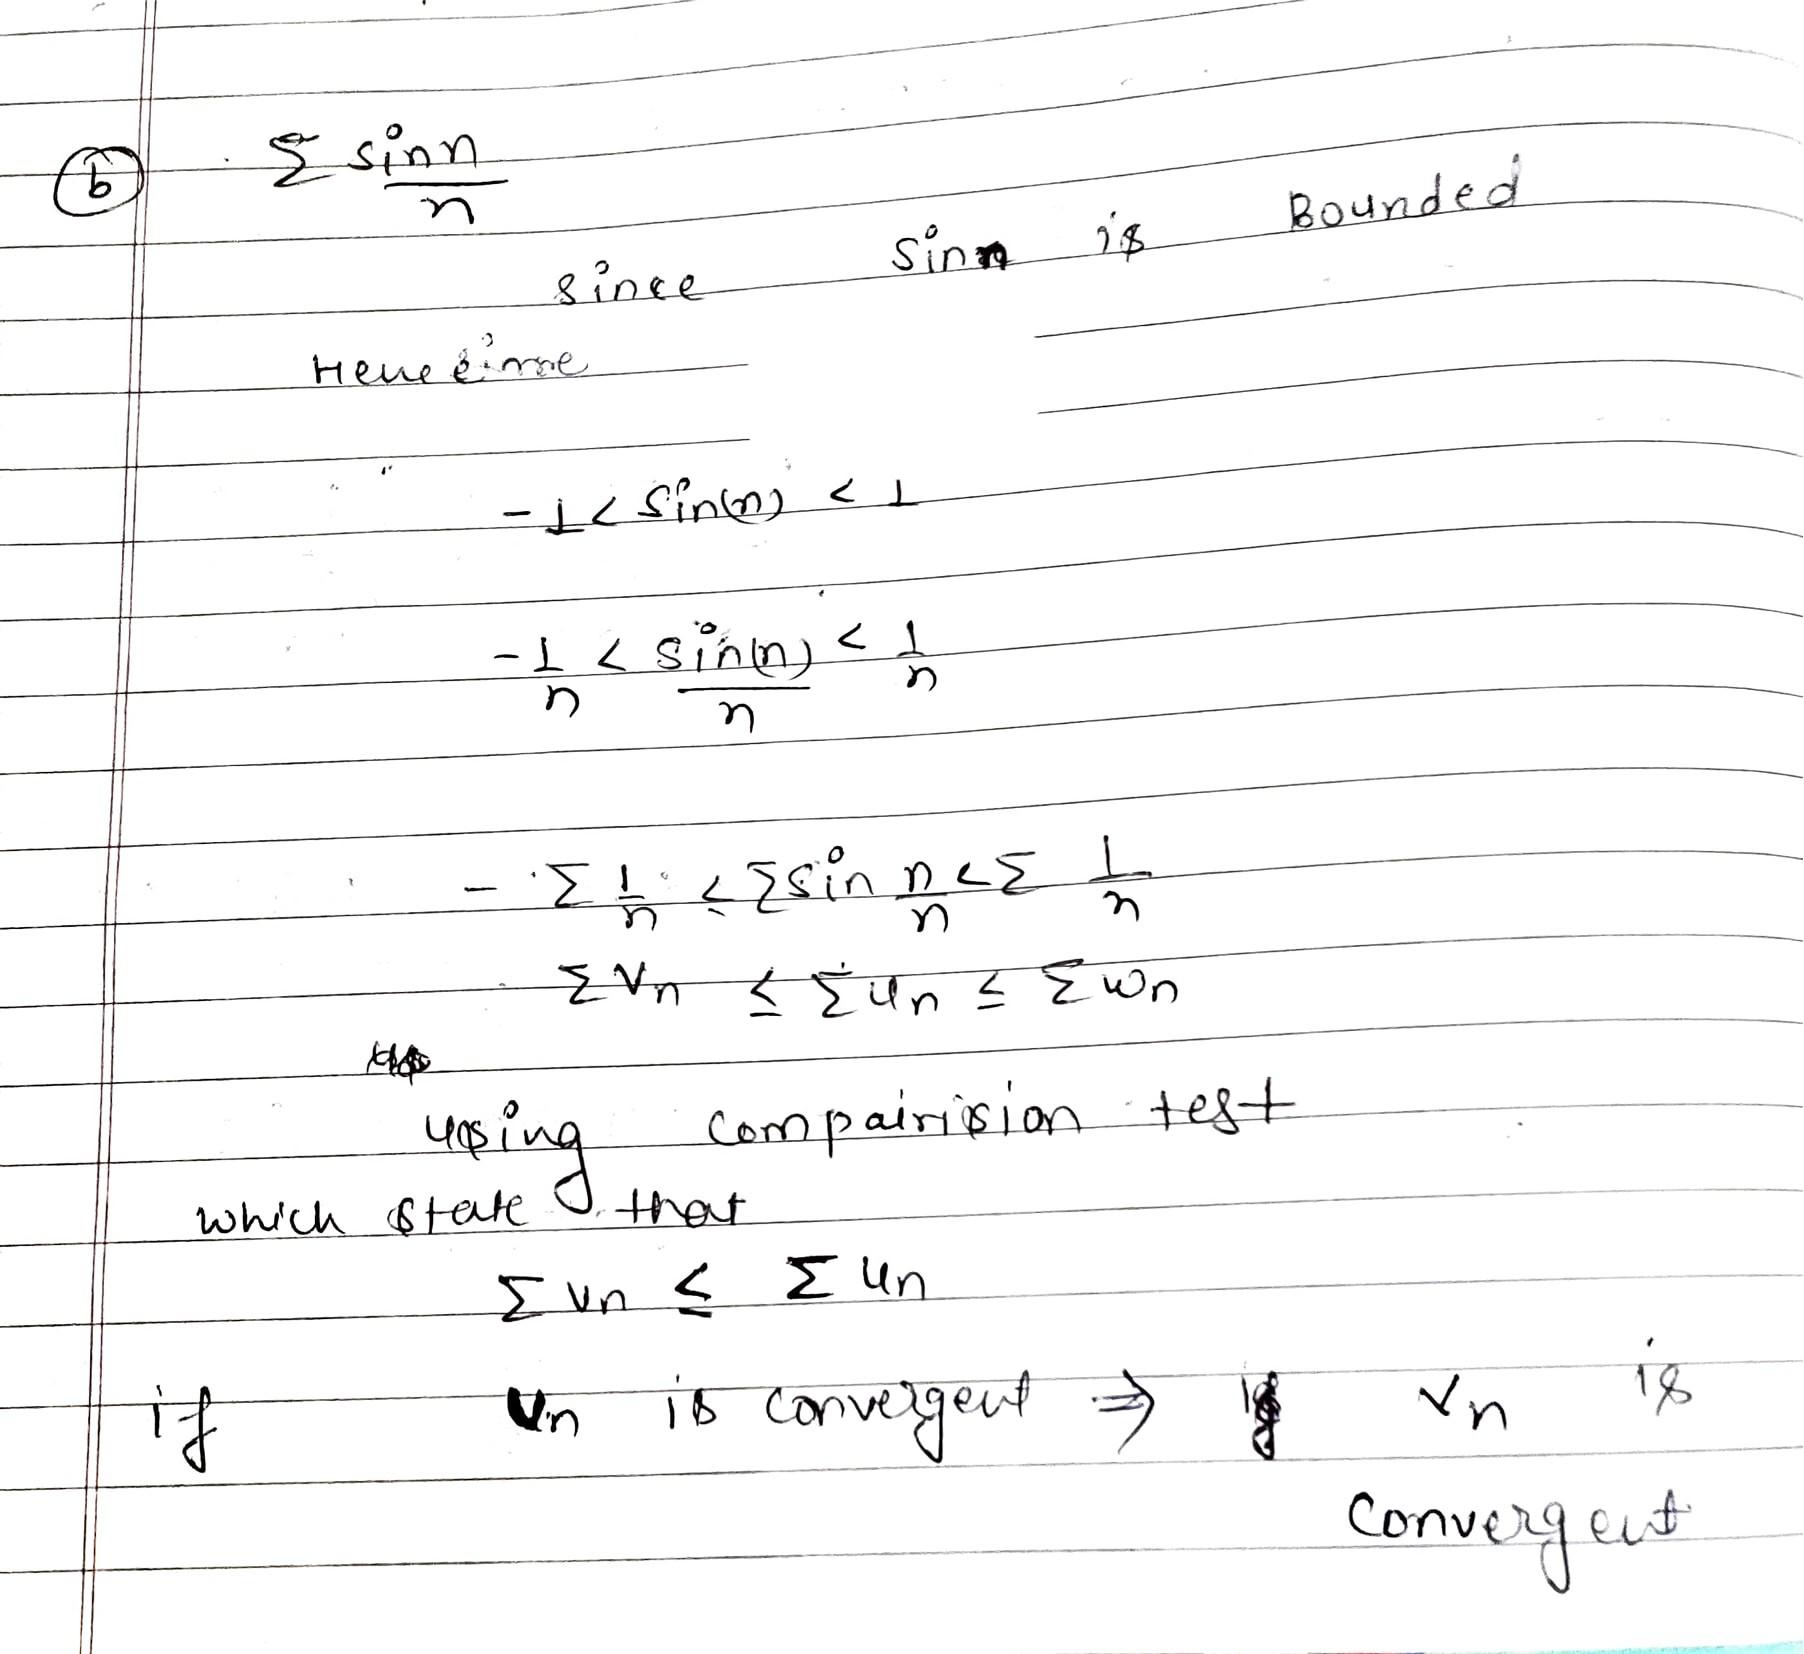 b
Σ sinn/n
since sinn is Bounded
-1 < sin(n) < 1
-1/n < sin(n)/n < 1/n
- Σ 1/n ≤ Σ sin n/n < Σ 1/n
Σ Vn ≤ Σ un ≤ Σ wn
using compairision test
which state that
Σ vn ≤ Σ un
if vn is convergent ⇒ vn is
convergent